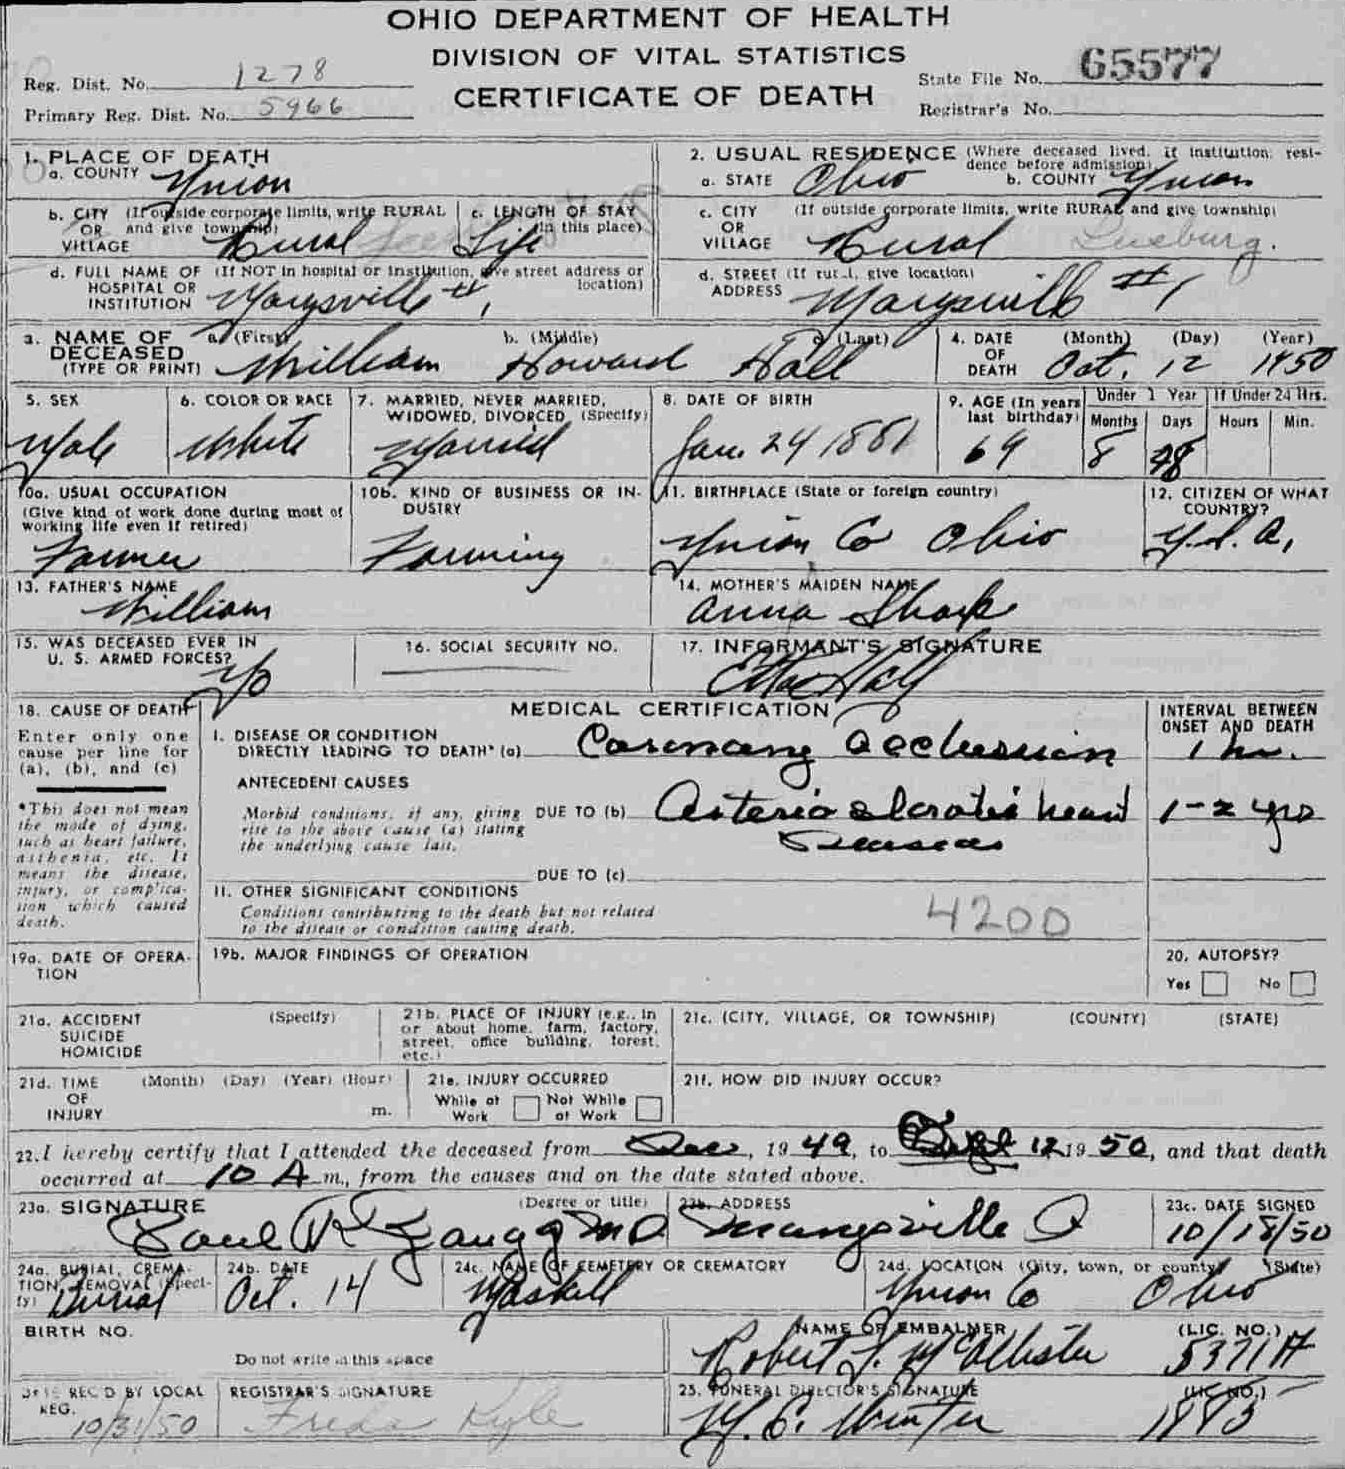 OHIO DEPARTMENT OF HEALTH
DIVISION OF VITAL STATISTICS
CERTIFICATE OF DEATH
Reg. Dist. No. 1278
Primary Reg. Dist. No. 5966
State File No. 65577
Registrar's No.
1. PLACE OF DEATH
a. COUNTY Union
b. CITY (If outside corporate limits, write RURAL
OR and give township)
VILLAGE Rural
c. LENGTH OF STAY
(in this place)
Life
d. FULL NAME OF (If NOT in hospital or institution, give street address or
HOSPITAL OR location)
INSTITUTION Marysville #1
2. USUAL RESIDENCE (Where deceased lived. If institution: resi-
dence before admission)
a. STATE Ohio b. COUNTY Union
c. CITY (If outside corporate limits, write RURAL and give township)
OR
VILLAGE Rural
d. STREET (If rural, give location)
ADDRESS Marysville #1
3. NAME OF a. (First) b. (Middle) c. (Last)
DECEASED
(TYPE OR PRINT) William Howard Hall
4. DATE (Month) (Day) (Year)
OF
DEATH Oct. 12 1950
5. SEX
Male
6. COLOR OR RACE
White
7. MARRIED, NEVER MARRIED,
WIDOWED, DIVORCED (Specify)
Married
8. DATE OF BIRTH
Jan. 24 1881
9. AGE (In years
last birthday)
69
Under 1 Year
Months Days
8
If Under 24 Hrs.
Hours Min.
10a. USUAL OCCUPATION
(Give kind of work done during most of
working life even if retired)
Farmer
10b. KIND OF BUSINESS OR IN-
DUSTRY
Farming
11. BIRTHPLACE (State or foreign country)
Union Co Ohio
12. CITIZEN OF WHAT
COUNTRY?
U.S.A.
13. FATHER'S NAME
William
14. MOTHER'S MAIDEN NAME
Anna
15. WAS DECEASED EVER IN
U. S. ARMED FORCES?
No
16. SOCIAL SECURITY NO.
17. INFORMANT'S SIGNATURE
Etta Hall
18. CAUSE OF DEATH
Enter only one
cause per line for
(a), (b), and (c)
*This does not mean
the mode of dying,
such as heart failure,
asthenia, etc. It
means the disease,
injury, or complica-
tion which caused
death.
MEDICAL CERTIFICATION
I. DISEASE OR CONDITION
DIRECTLY LEADING TO DEATH* (a) Coronary Occlusion
ANTECEDENT CAUSES
Morbid conditions, if any, giving
rise to the above cause (a) stating
the underlying cause last.
DUE TO (b) Arterio sclerotic heart
Disease
DUE TO (c)
II. OTHER SIGNIFICANT CONDITIONS
Conditions contributing to the death but not related
to the disease or condition causing death.
4200
INTERVAL BETWEEN
ONSET AND DEATH
1 hr.
1-2 yrs
19a. DATE OF OPERA-
TION
19b. MAJOR FINDINGS OF OPERATION
20. AUTOPSY?
Yes No
21a. ACCIDENT (Specify)
SUICIDE
HOMICIDE
21b. PLACE OF INJURY (e.g., in
or about home, farm, factory,
street, office building, forest,
etc.)
21c. (CITY, VILLAGE, OR TOWNSHIP) (COUNTY) (STATE)
21d. TIME (Month) (Day) (Year) (Hour)
OF
INJURY m.
21e. INJURY OCCURRED
While at Not While
Work at Work
21f. HOW DID INJURY OCCUR?
22. I hereby certify that I attended the deceased from Dec, 1949, to 12 1950, and that death
occurred at 10 A m., from the causes and on the date stated above.
23a. SIGNATURE (Degree or title)
Paul R Zaugg MD
23b. ADDRESS
Marysville O
23c. DATE SIGNED
10/18/50
24a. BURIAL, CREMA-
TION, REMOVAL (Speci-
fy)
Burial
24b. DATE
Oct. 14
24c. NAME OF CEMETERY OR CREMATORY
Maskill
24d. LOCATION (City, town, or county) (State)
Union Co Ohio
BIRTH NO.
Do not write in this space
NAME OF EMBALMER (LIC. NO.)
Robert McAllister 5371A
DATE REC'D BY LOCAL
REG.
10/31/50
REGISTRAR'S SIGNATURE
Freda Kyle
25. FUNERAL DIRECTOR'S SIGNATURE (LIC. NO.)
Winter